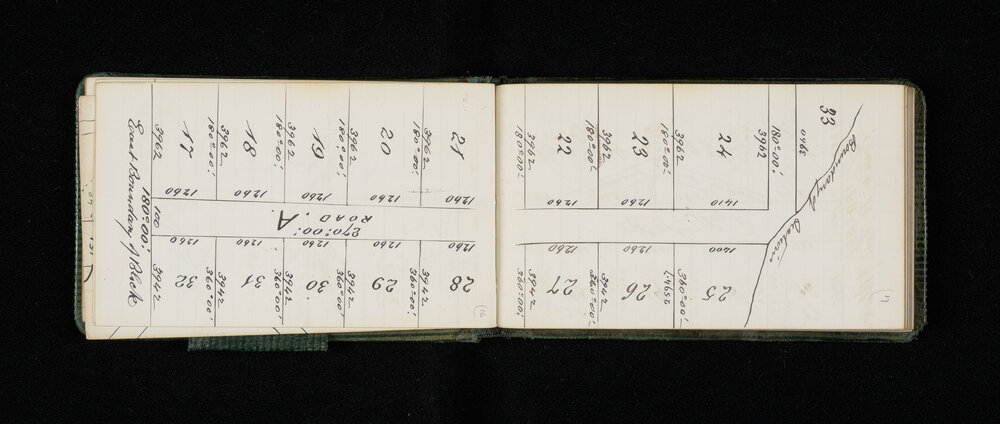 East Boundary of Block
180°:00':
3962
100
3942
17
32
3962
180°:00':
1260
1260
3942
360°:00'
18
31
3962
180°:00':
1260
1260
3942
360°:00'
19
30
3962
180°:00':
1260
1260
3942
360°:00'
20
29
3962
180°:00':
1260
1260
3942
360°:00'
21
28
1260
1260
270°:00': A.
ROAD.
16
3962
180°:00':
3942
360°:00':
22
27
1260
1260
3962
180°:00':
3942
360°:00':
23
26
1260
1260
3962
180°:00':
360°:00':
24
25
1410
1400
180°:00':
3962
33
Boundary of
17